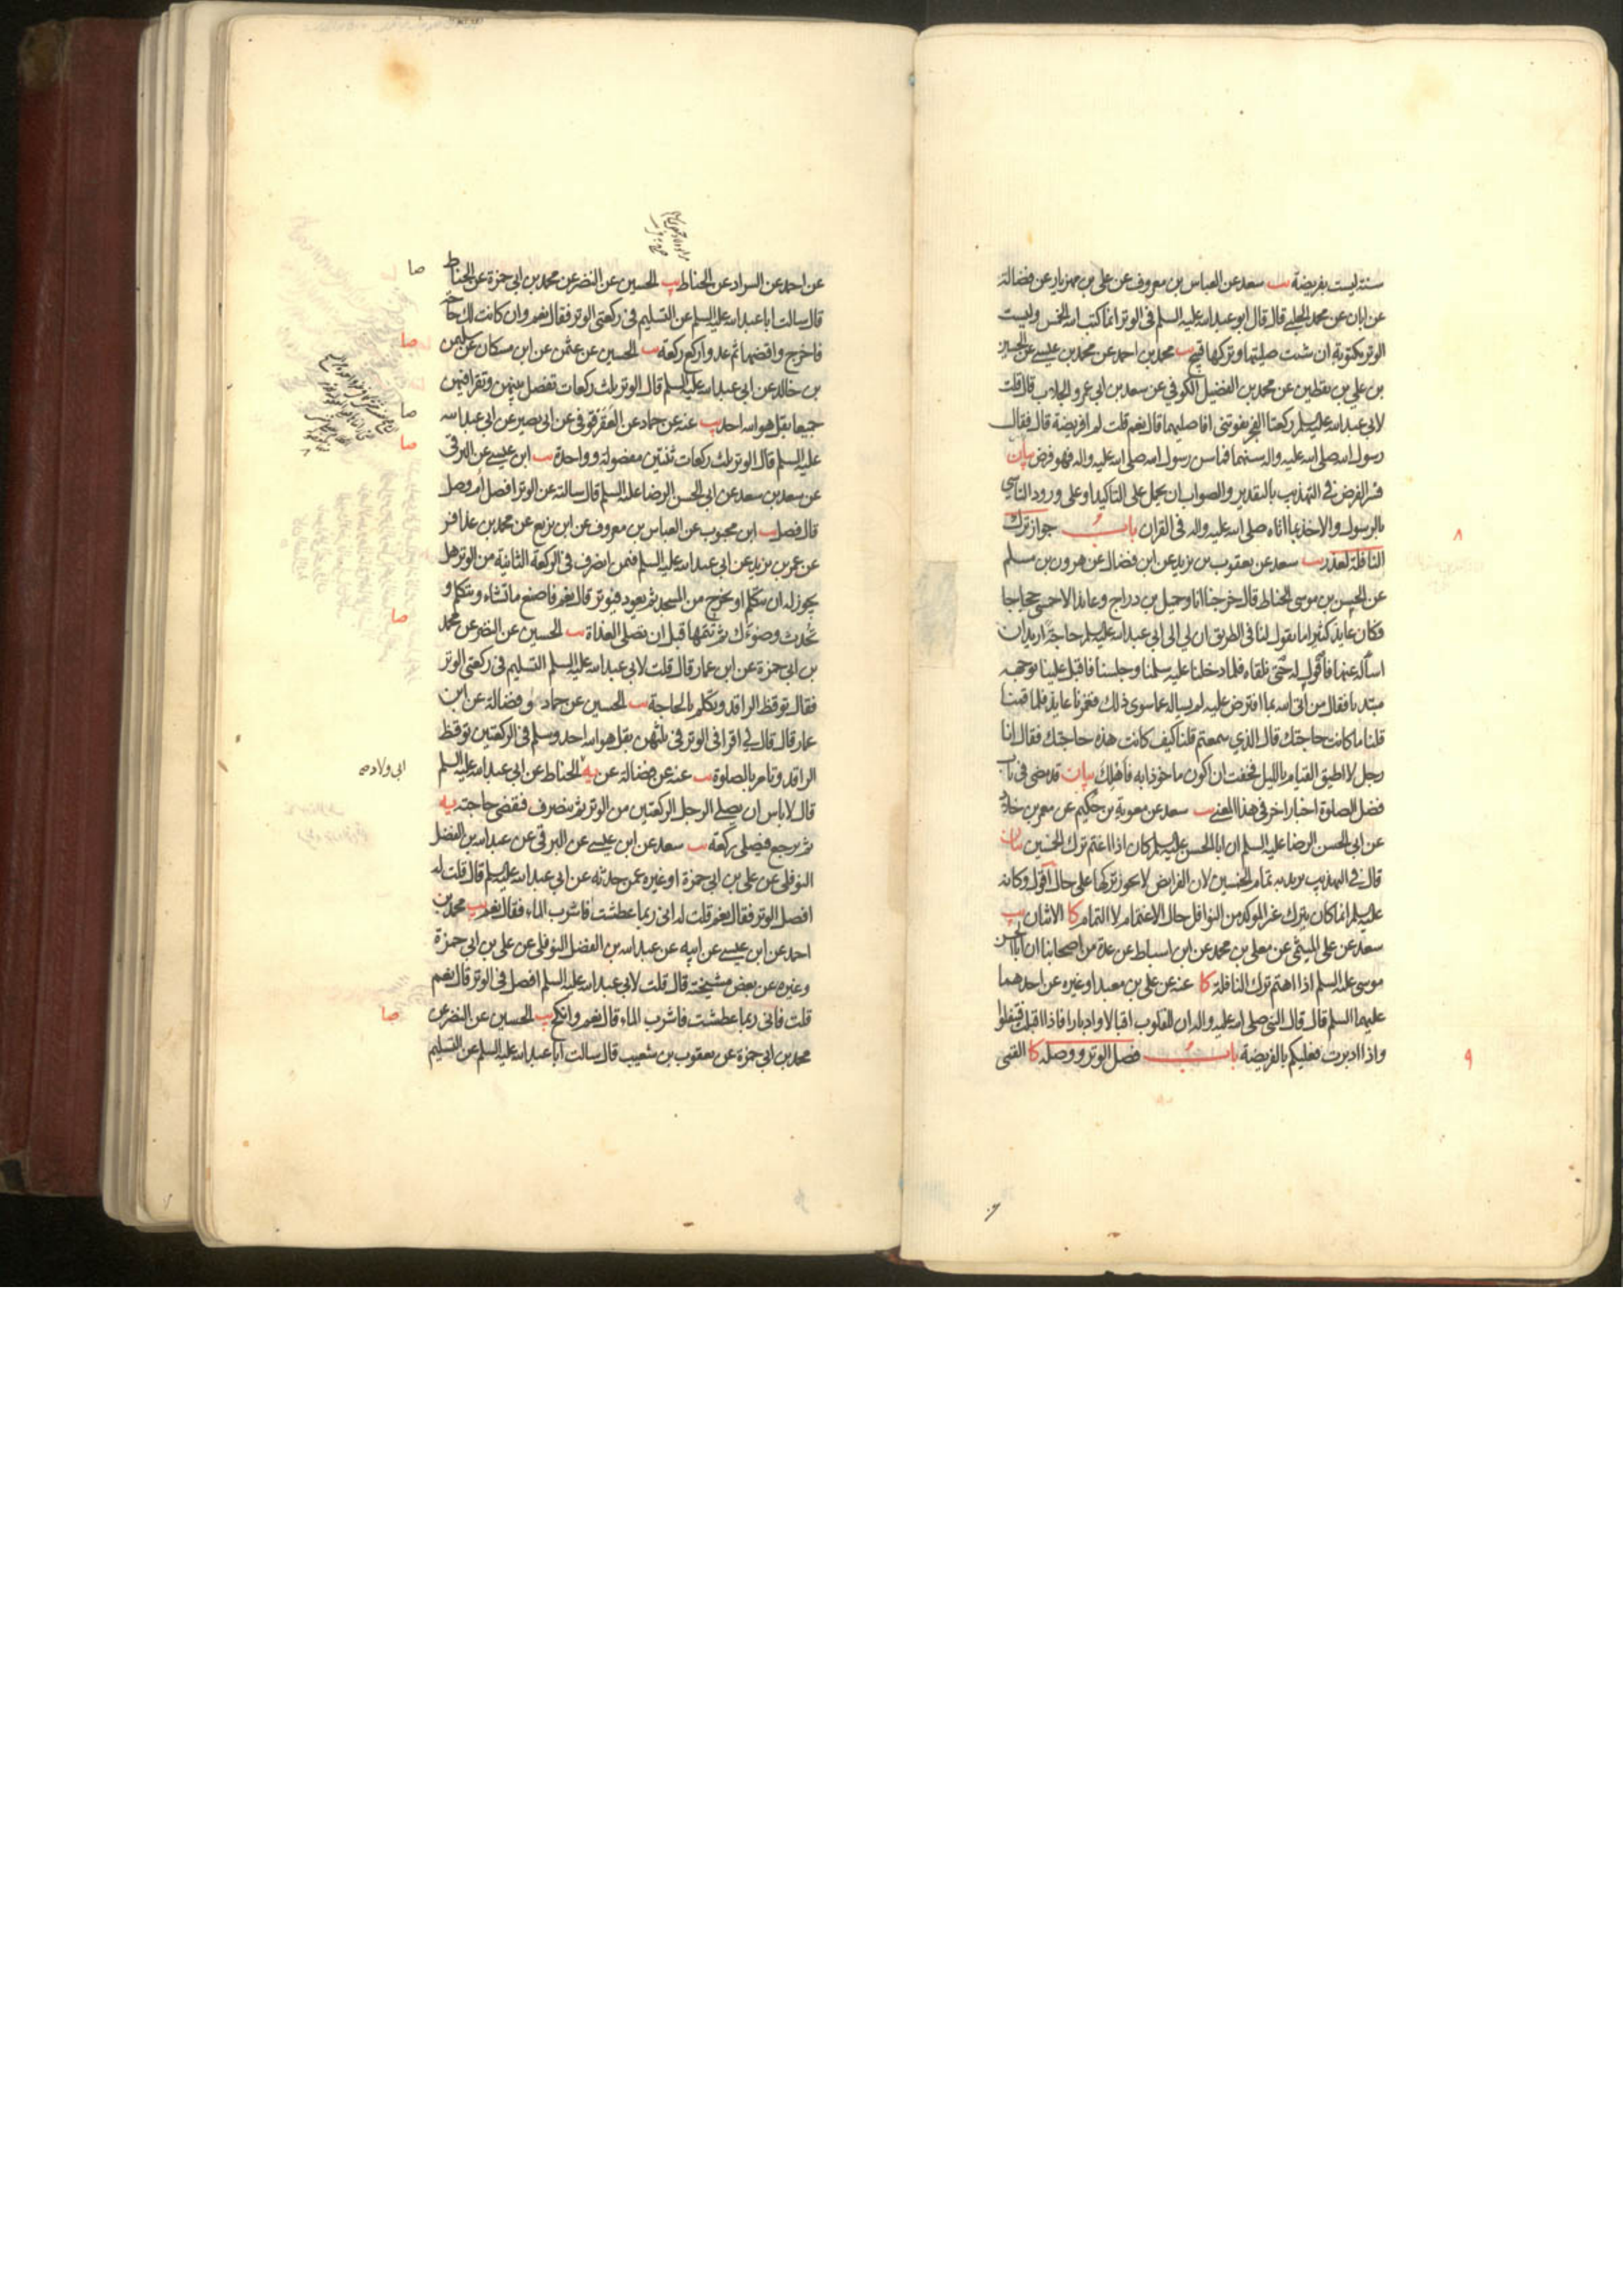 سنة ليست بفريضة يب سعد عن العباس بن معروف عن علي بن مهزيار عن فضالة
عن ابان عن محمد الحلبي قال قال ابو عبدالله عليه السلم في الوتر انما كتب الله الخمس وليست
الوتر مكتوبة ان شئت صليتها وتركها قبيح يب محمد بن احمد عن محمد بن عيسى عن الحسين
بن علي بن يقطين عن محمد بن الفضيل الكوفي عن سعد بن ابي عمرو الجلاب قال قلت
لابي عبدالله عليه السلم ركعتا الفجر تفوتني افاصليهما قال نعم قلت لم افريضة قال فقال
رسول الله صلى الله عليه واله سنهما فما سن رسول الله صلى الله عليه واله فهو فرض بيان
فسر الفرض في التهذيب بالتقدير والصواب ان يحمل على التاكيد او على ورود التاسي
بالرسول والاخذ بما اتاه صلى الله عليه واله في القران باب جواز ترك
النافلة لعذر يب سعد عن يعقوب بن يزيد عن ابن فضال عن هرون بن مسلم
عن الحسن بن موسى الحناط قال خرجنا انا وجميل بن دراج وعايذ الاحمسي حجاجا
فكان عايذ كثيرا ما يقول لنا في الطريق ان لي الى ابي عبدالله عليه السلم حاجة اريد ان
اساله عنها فاقول له حتى نلقاه فلما دخلنا عليه سلمنا وجلسنا فاقبل علينا بوجهه
مبتديا فقال من اتى الله بما افترض عليه لم يساله عما سوى ذلك فغمزنا عايذ فلما قمنا
قلنا ما كانت حاجتك قال الذي سمعتم قلنا كيف كانت هذه حاجتك فقال انا
رجل لا اطيق القيام بالليل فخفت ان اكون ماخوذا به فاهلك بيان قد مضى في باب
فضل الصلوة اخبار اخر في هذا المعنى يب سعد عن معوية بن حكيم عن معمر بن خلاد
عن ابي الحسن الرضا عليه السلم ان ابا الحسن عليه السلم كان اذا اغتم ترك الخمسين بيان
قال في التهذيب يريد به تمام الخمسين لان الفرايض لا يجوز تركها على حال اقول وكانه
عليه السلم انما كان يترك غير الموكد من النوافل حال الاغتمام لا التمام كا الاثنان يب
سعد عن علي الميثمي عن معلى بن محمد عن ابن اسباط عن عدة من اصحابنا ان ابا الحسن
موسى عليه السلم اذا اهتم ترك النافلة كا عنه عن علي بن معبد او غيره عن احدهما
عليهما السلم قال قال النبي صلى الله عليه واله ان للقلوب اقبالا وادبارا فاذا اقبلت فتنفلوا
واذا ادبرت فعليكم بالفريضة باب فصل الوتر ووصله كا القمي
٨
٩
عن احمد عن السراد عن الحناط يب الحسين عن النضر عن محمد بن ابي حمزة عن الحناط
قال سالت ابا عبدالله عليه السلم عن التسليم في ركعتي الوتر فقال نعم وان كانت لك حاجة
فاخرج واقضها ثم عد واركع ركعة يب الحسين عن عثمن عن ابن مسكان عن سليمن
بن خالد عن ابي عبدالله عليه السلم قال الوتر ثلث ركعات تفصل بينهن وتقرا فيهن
جميعا بقل هو الله احد يب عنه عن حماد عن العقرقوفي عن ابي بصير عن ابي عبدالله
عليه السلم قال الوتر ثلث ركعات ثنتين مفصولة وواحدة يب ابن عيسى عن البرقي
عن سعد بن سعد عن ابي الحسن الرضا عليه السلم قال سالته عن الوتر افصل ام وصل
قال فصل يب ابن محبوب عن العباس بن معروف عن ابن بزيع عن محمد بن عذافر
عن عمر بن يزيد عن ابي عبدالله عليه السلم فيمن انصرف في الركعة الثانية من الوتر هل
يجوز له ان يتكلم او يخرج من المسجد ثم يعود فيوتر قال نعم فاصنع ما تشاء وتتكلم و
تحدث وضوءك ثم تتمها قبل ان تصلى الغداة يب الحسين عن النضر عن محمد
بن ابي حمزة عن ابن عمار قال قلت لابي عبدالله عليه السلم التسليم في ركعتي الوتر
فقال توقظ الراقد وتكلم بالحاجة يب الحسين عن حماد وفضالة عن ابن
عمار قال قال لي اقرا في الوتر في ثلثهن بقل هو الله احد وسلم في الركعتين توقظ
الراقد وتامر بالصلوة يب عنه عن فضالة عن يه الحناط عن ابي عبدالله عليه السلم
قال لا باس ان يصلي الرجل الركعتين من الوتر ثم ينصرف فيقضي حاجته يه
ثم يرجع فيصلي ركعة يب سعد عن ابن عيسى عن البرقي عن عبدالله بن الفضل
النوفلي عن علي بن ابي حمزة او غيره عمن حدثه عن ابي عبدالله عليه السلم قال قلت له
افصل الوتر فقال نعم قلت له اني ربما عطشت فاشرب الماء فقال نعم يب محمد بن
احمد عن ابن عيسى عن ابيه عن عبدالله بن الفضل النوفلي عن علي بن ابي حمزة
وغيره عن بعض مشيخته قال قلت لابي عبدالله عليه السلم افصل في الوتر قال نعم
قلت فاني ربما عطشت فاشرب الماء قال نعم وانكح يب الحسين عن النضر عن
محمد بن ابي حمزة عن يعقوب بن شعيب قال سالت ابا عبدالله عليه السلم عن التسليم
صا
صا
صا
صا
صا
ابي ولاد
صا